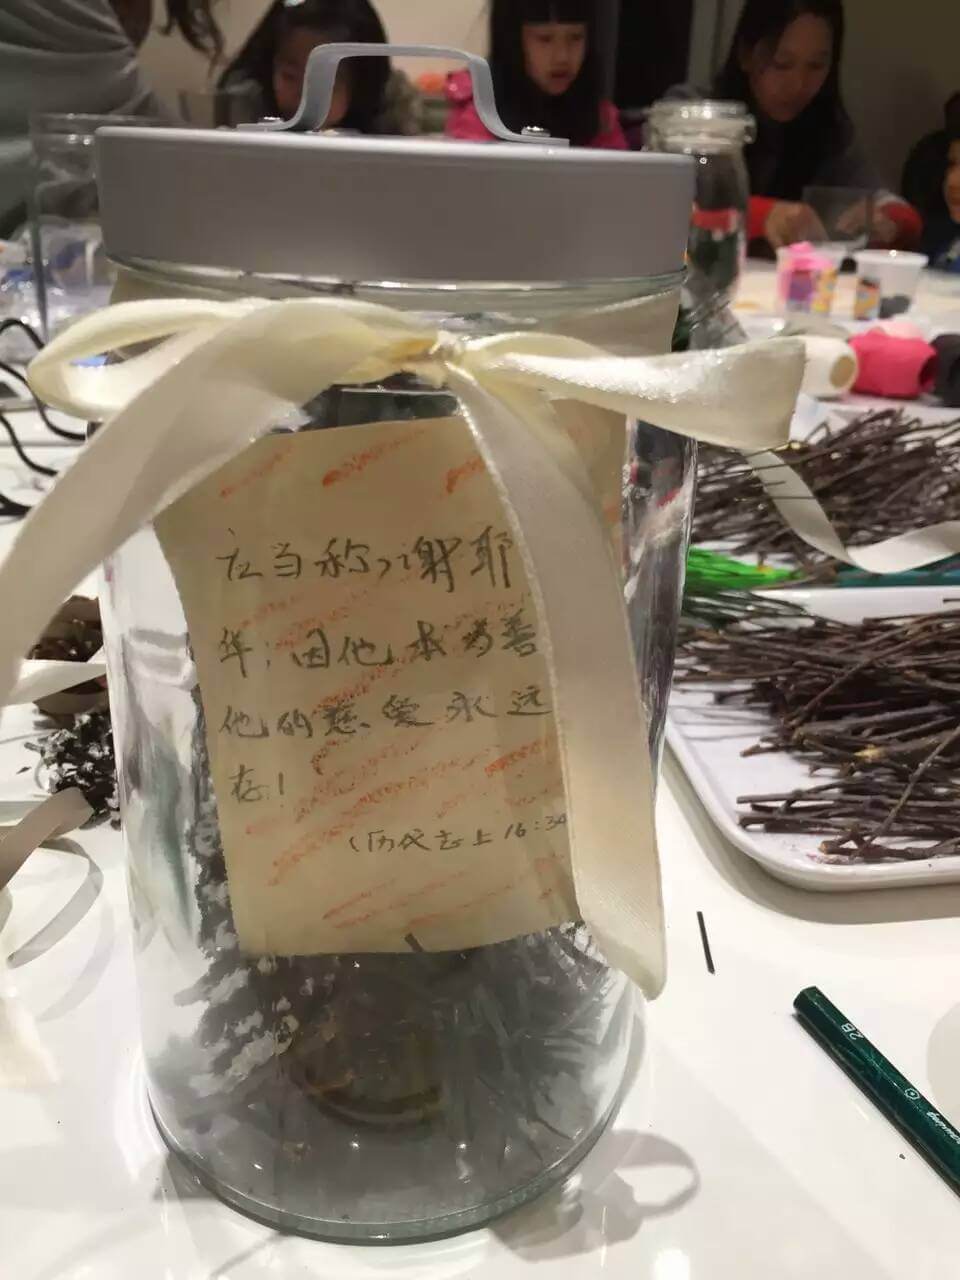 应当称谢耶
华，因他本为善
他的慈爱永远
存！
（历代志上 16:34
2B